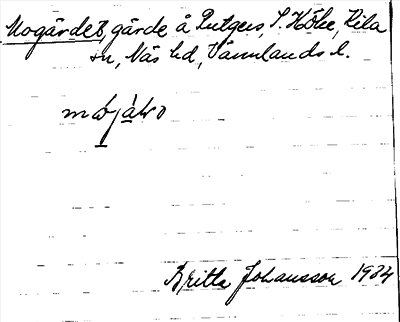 Mogärdet, gärde å Rutgers, S. Höke, Kila
sn, Näs hd, Värmlands l.
Britta Johansson 1934